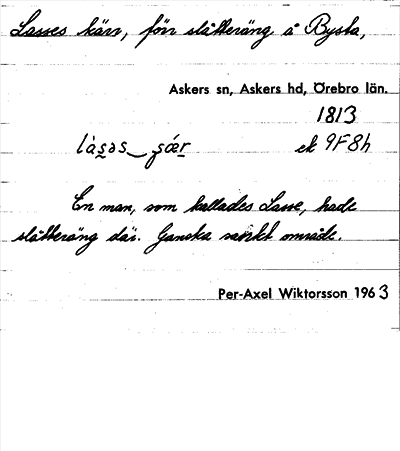 Lasses kärr, förr slåtteräng å Bysta,
Askers sn, Askers hd, Örebro län.
1813
làsəs ‿ çæ̀r ek 9F8h
En man, som kallades Lasse, hade
slåtteräng där. Ganska sankt område.
Per-Axel Wiktorsson 1963